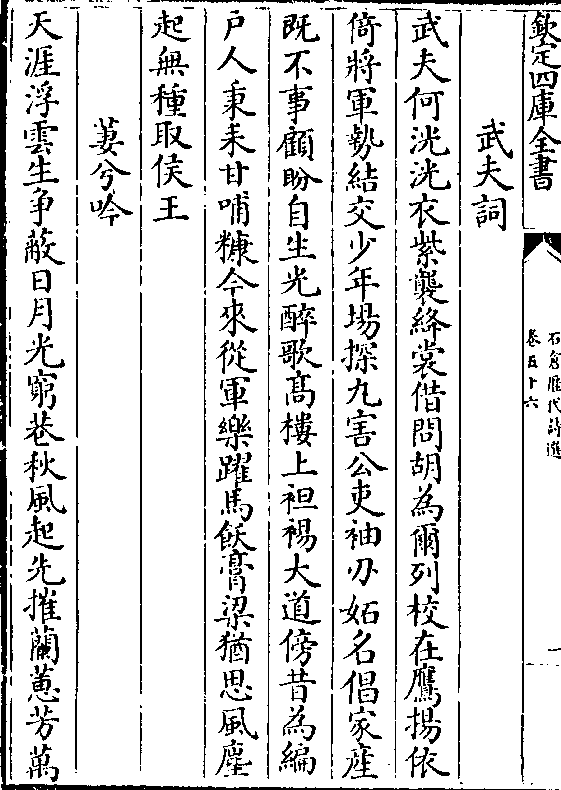 欽定四庫全書
石倉歷代詩選
卷五十六
一
武夫詞
武夫何洸洸衣紫襲絳裳借問胡為爾列校在鷹揚依
倚將軍勢結交少年場探九害公吏袖刃妬名倡家產
既不事顧盼自生光醉歌髙樓上袒裼大道傍昔為編
户人秉耒甘哺糠今來從軍樂躍馬飫膏梁猶思風塵
起無種取侯王
萋兮吟
天涯浮雲生争蔽日月光窮巷秋風起先摧蘭蕙芳萬